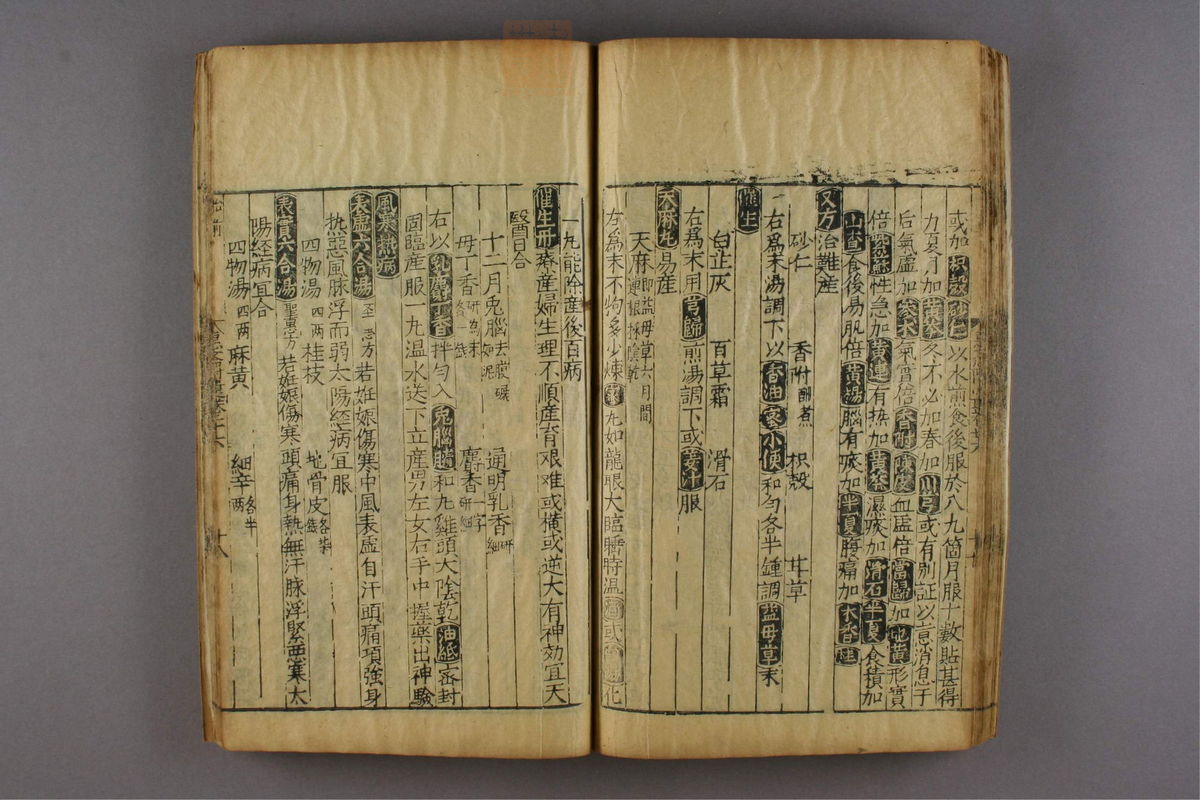 或加枳殼砂仁以水煎食後服於八九箇月服十數貼甚得
力夏月加黃芩冬不必加春加川芎或有別証以意消息于
后氣虛加參朮氣實倍香附陳皮血虛倍當歸加地黃形實
倍紫蘇性急加黃連有热加黃芩濕痰加滑石半夏食積加
山查食後易肌倍黃楊腦有痰加半夏腹痛加木香桂
又方治難產
砂仁 香附醋煮 枳殼 甘草
右爲末湯調下以香油蜜小便和勻各半鍾調益母草末
催生
白芷灰 百草霜 滑石
右爲末用芎歸煎湯調下或姜汁服
天麻丸易產
天麻即益母草六月間連根採陰乾
右爲末不拘多少煉蜜丸如龍眼大臨睡時溫酒或化
一丸能除產後百病
催生丹療產婦生理不順產育艰难或橫或逆大有神効宜天
醫日合
十二月兔腦去膜碾如泥 通明乳香研細
母丁香研為末各錢 麝香研細一字
右以乳麝丁香拌勻入兔腦髓和丸雞頭大陰乾油紙密封
固臨產服一丸温水送下立產男左女右手中握藥出神驗
風寒熱病
表虛六合湯至惠方若妊娠傷寒中風表虛自汗頭痛項強身
热惡風脉浮而弱太陽經病宜服
四物湯四兩 桂枝 地骨皮各柒錢
表實六合湯聖惠方若妊娠傷寒頭痛身熱無汗脉浮緊惡寒太
陽經病宜合
四物湯四兩 麻黃 細辛各半兩